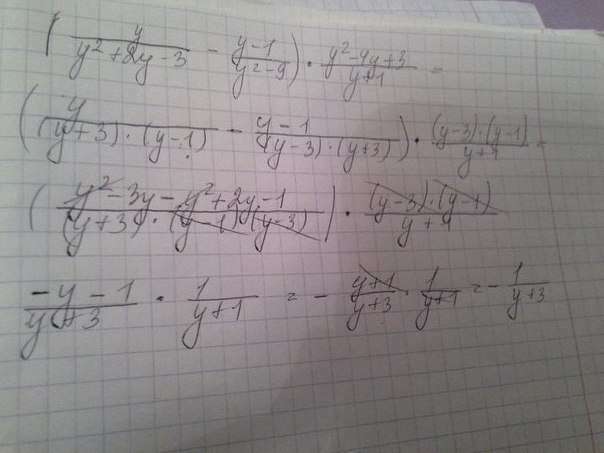 ( y / (y² + 2y - 3) - (y - 1) / (y² - 9) ) · (y² - 4y + 3) / (y + 1) =
( y / ((y + 3) · (y - 1)) - (y - 1) / ((y - 3) · (y + 3)) ) · ((y - 3) · (y - 1)) / (y + 1) =
( (y² - 3y - y² + 2y - 1) / ((y + 3) · (y - 1) (y - 3)) ) · ((y - 3) · (y - 1)) / (y + 1)
(-y - 1) / (y + 3) · 1 / (y + 1) = - (y + 1) / (y + 3) · 1 / (y + 1) = - 1 / (y + 3)